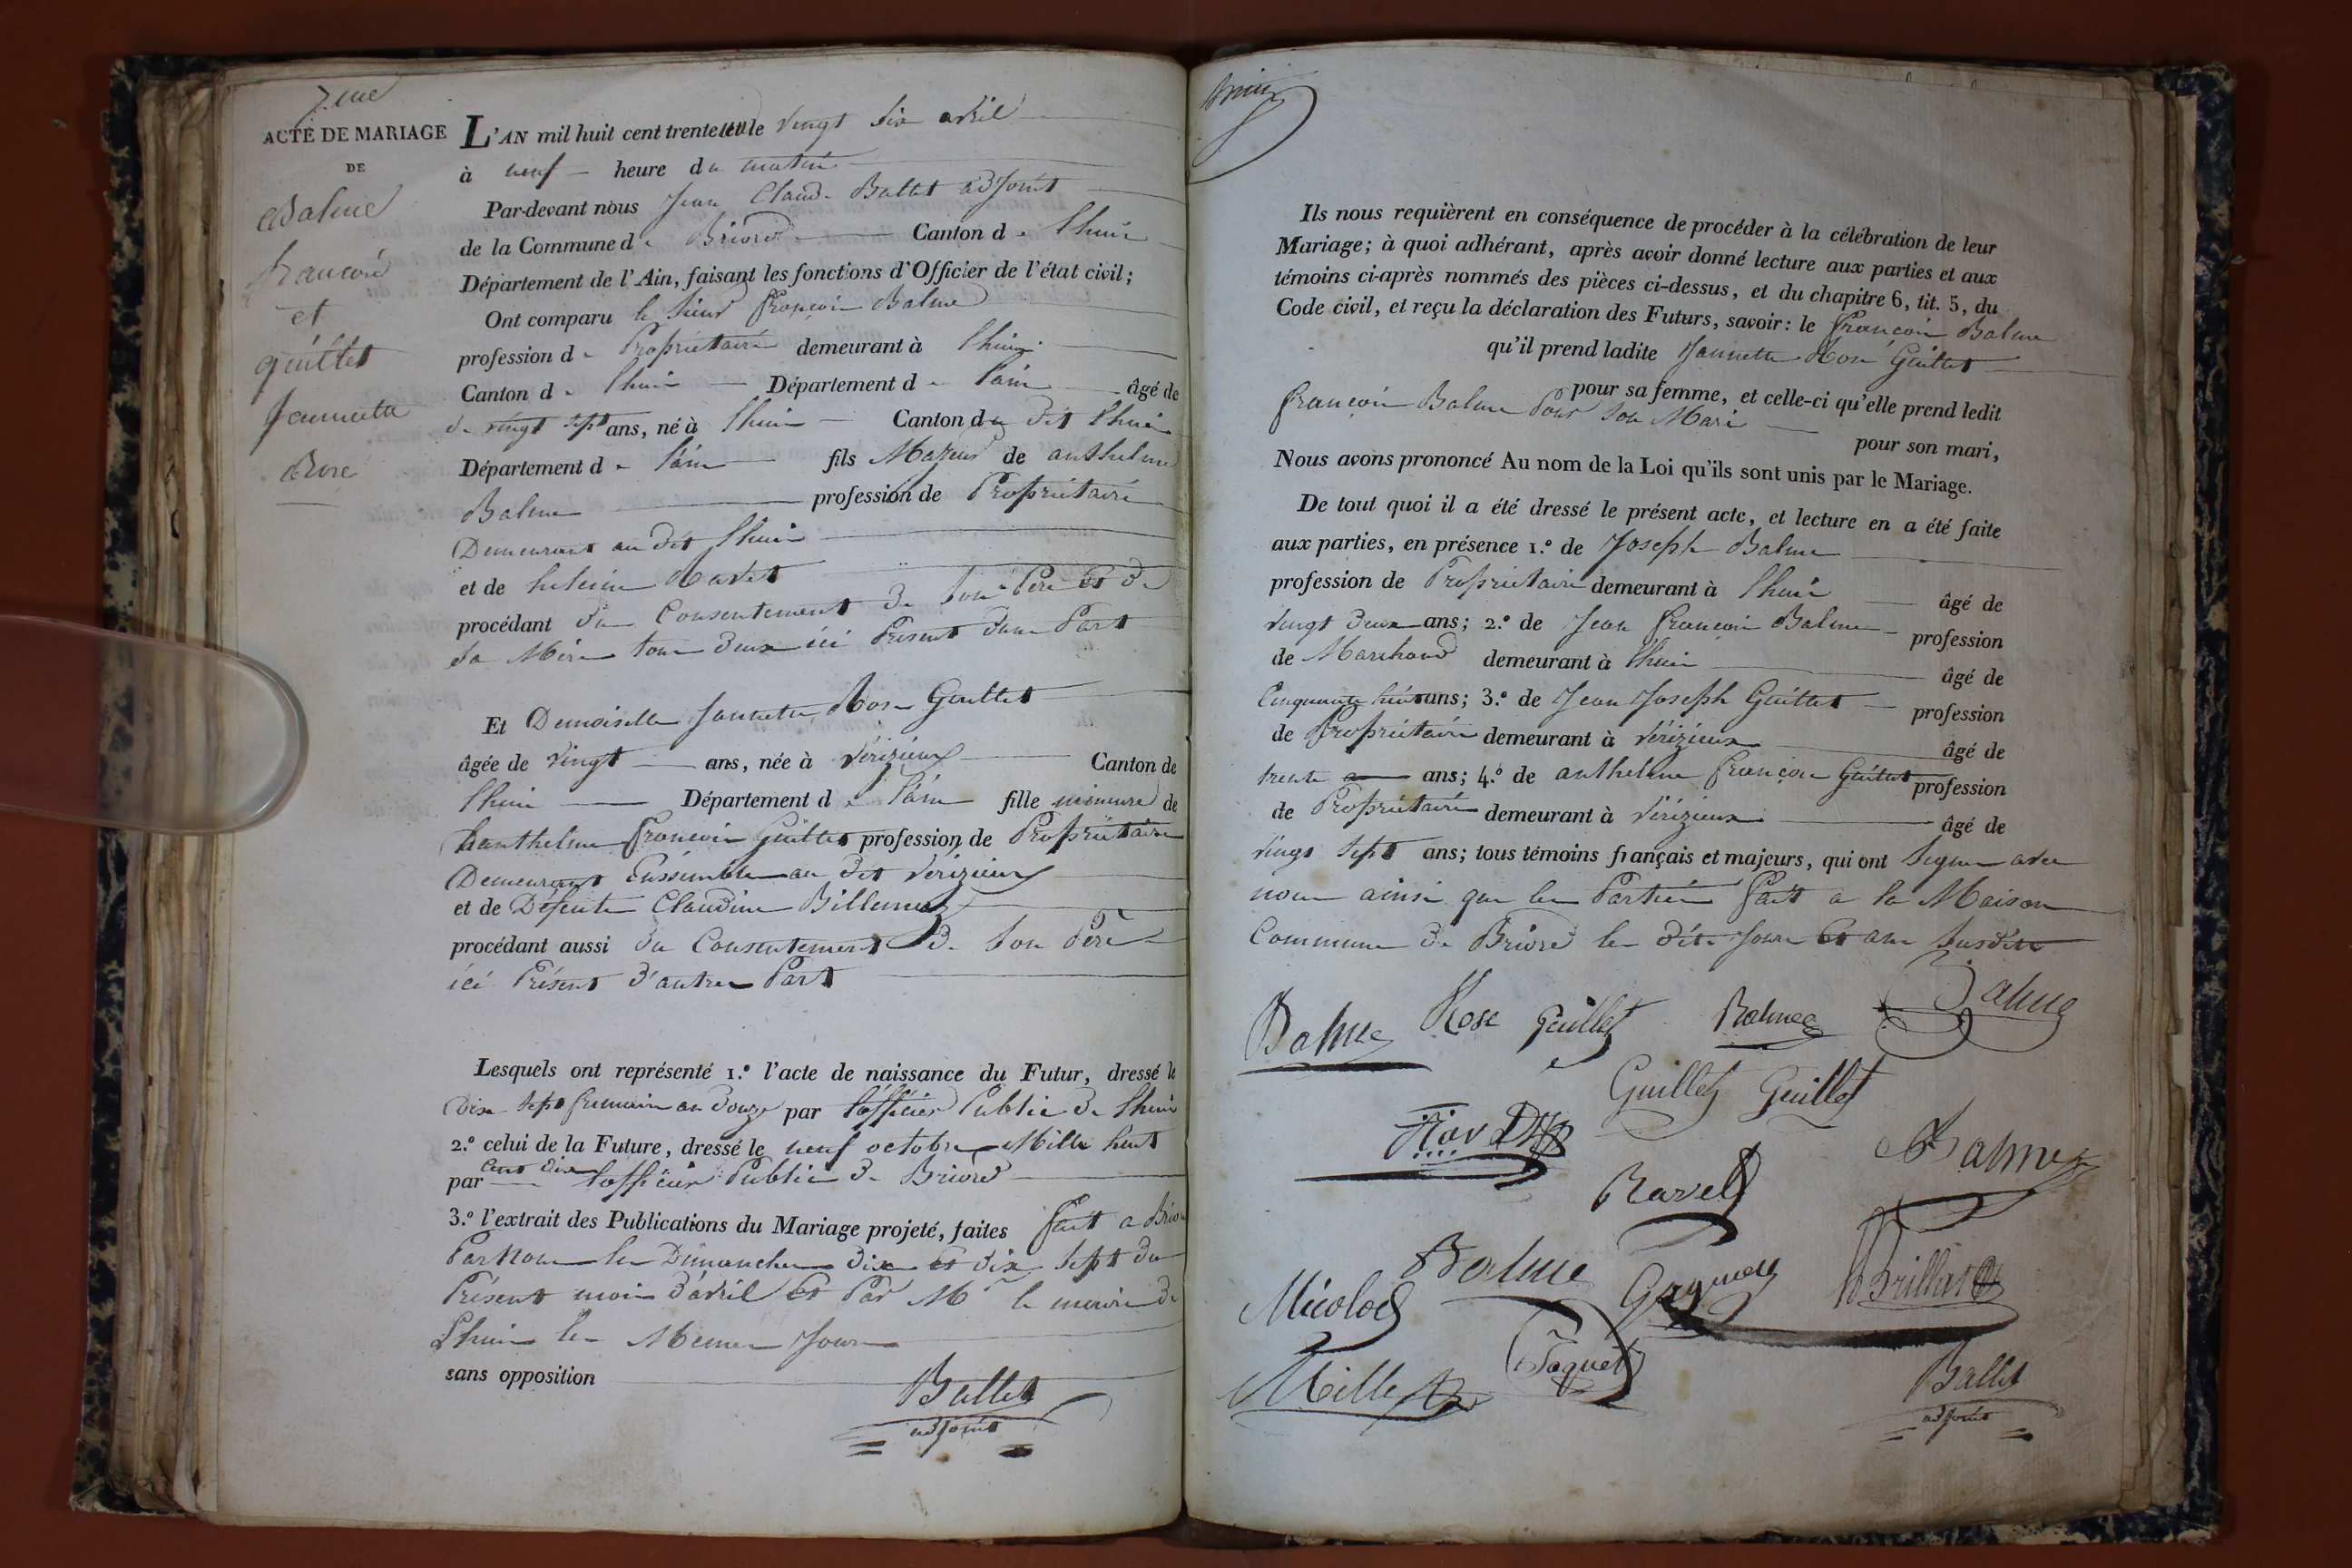 7me
ACTE DE MARIAGE
DE
Balme
francois
et
guillet
Jannette
Rose
L'AN mil huit cent trente et un le vingt six avril
à neuf heure du matin
Par-devant nous Jean Claude Ballet adjoint
de la Commune de Briord Canton de Lhuis
Département de l'Ain, faisant les fonctions d'Officier de l'état civil;
Ont comparu le sieur françois Balme
profession de Propriétaire demeurant à Lhuis
Canton de Lhuis Département de l'ain âgé de
de vingt sept ans, né à Lhuis Canton du dit Lhuis
Département de l'ain fils Majeur de anthelme
Balme profession de Propriétaire
Demeurant au dit Lhuis
et de Ravet
procédant du Consentement de son Pere et de
sa Mere tous deux ici Présent d'une Part
Et Demoiselle Jannette Rose Guillet
âgée de vingt ans, née à Vérizieux Canton de
Lhuis Département de l'ain fille mineure de
hanthelme francois Guillet profession de Propriétaire
Demeurant Enssemble au dit Vérizieux
et de Défeinte Claudine Billemaz
procédant aussi du Consentement de son Père
ici Présent d'autre Part
Lesquels ont représenté 1.º l'acte de naissance du Futur, dressé le
Dix sept frimaire an douze par l'officier Public de Lhuis
2.º celui de la Future, dressé le neuf octobre Mille huit
cent dix
par l'officier Public de Briord
3.º l'extrait des Publications du Mariage projeté, faites fait a Briord
Par nous les Dimanches dix et dix sept du
Présent mois d'avril et Par Mr le maire de
Lhuis les Memes Jours
sans opposition
Ballet
adjoint
Ils nous requièrent en conséquence de procéder à la célébration de leur
Mariage; à quoi adhérant, après avoir donné lecture aux parties et aux
témoins ci-après nommés des pièces ci-dessus, et du chapitre 6, tit. 5, du
Code civil, et reçu la déclaration des Futurs, savoir: le françois Balme
qu'il prend ladite Jannette Rose Guillet
pour sa femme, et celle-ci qu'elle prend ledit
françois Balme Pour son Mari
pour son mari,
Nous avons prononcé Au nom de la Loi qu'ils sont unis par le Mariage.
De tout quoi il a été dressé le présent acte, et lecture en a été faite
aux parties, en présence 1.º de Joseph Balme
profession de Propriétaire demeurant à Lhuis âgé de
vingt deux ans; 2.º de Jean françois Balme profession
de Marchand demeurant à Lhuis âgé de
Cinquante huit ans; 3.º de Jean Joseph Guillet profession
de Propriétaire demeurant à Vérizieux âgé de
trente ans; 4.º de anthelme françois Guillet profession
de Propriétaire demeurant à Vérizieux âgé de
vingt Sept ans; tous témoins français et majeurs, qui ont signer avec
nous ainsi que les Parties fait a la Maison
Commune de Briord les dits Jour et an susdits
Balme Rose Guillet Balme Balme
Guillet Guillet
Balme
Ravet
Balme
Micolod
Brillat
Millet
Jaquet
Ballet
adjoint